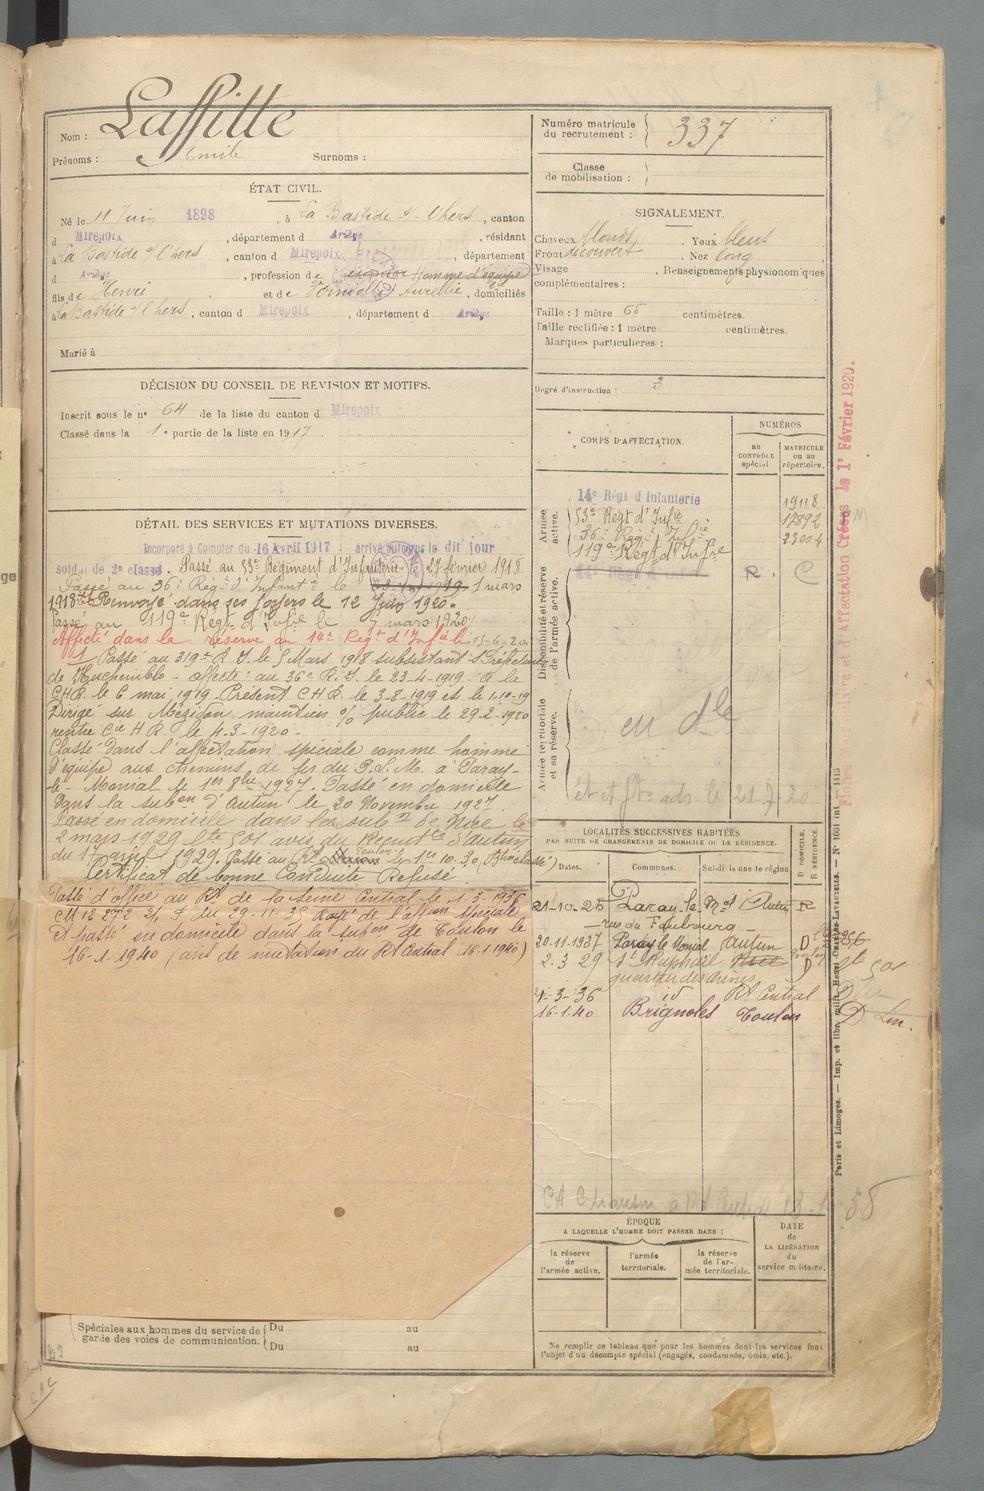 Nom : Laffitte
Prénoms : Emile Surnoms :
Numéro matricule du recrutement : 337
Classe de mobilisation :
ÉTAT CIVIL.
Né le 11 Juin 1898, à La Bastide s/ l'hers, canton
d Mirepoix, département d Ariège, résidant
à La Bastide s/ l'hers, canton d Mirepoix, département
d Ariège, profession de Homme d'équipe
fils de Henri et de Aurélie, domiciliés
à La Bastide s/ l'hers, canton d Mirepoix, département d Ariège
Marié à
SIGNALEMENT.
Cheveux blonds. Yeux bleus
Front découvert. Nez long
Visage . Renseignements physionomiques
complémentaires :
Taille : 1 mètre 65 centimètres.
Taille rectifiée : 1 mètre centimètres.
Marques particulières :
Degré d'instruction : 3
DÉCISION DU CONSEIL DE REVISION ET MOTIFS.
Inscrit sous le n° 64 de la liste du canton d Mirepoix
Classé dans la 1e partie de la liste en 1917
CORPS D'AFFECTATION.
NUMÉROS
AU CONTRÔLE spécial
MATRICULE OU AU répertoire.
Armée active.
14e Régt d'Infanterie 19118
53e Régt d'Infie 17892
36e Régt d'Infie 23004
119e Régt d'Infie
Disponibilité et réserve de l'armée active.
R. C
Armée territoriale et sa réserve.
en dle
21-7-20
DÉTAIL DES SERVICES ET MUTATIONS DIVERSES.
Incorporé à Compter du 16 Avril 1917 arrivé au corps le dit jour
soldat de 2e classe. Passé au 53e Régiment d'Infanterie le 27 février 1918.
Passé au 36e Régt d'Infantie le 1 mars
1918. Renvoyé dans ses foyers le 12 Juin 1920.
Passé au 119e Régt d'Infie le 5 mars 1920
Affecté dans la réserve au 14e Régt d'Infie le 13-6-20
1 Passé au 319e R.I. le 5 Mars 1918 subsistant
de affecté au 36e R.I. le 23-4-1919 à la
C.H.R. le 6 mai 1919. Présent C.H.R. le 3-8-1919 et le 1-10-19
Dirigé sur Mézidon maintien o/ public le 29-2-1920
rentré Cie H.R. le 4-3-1920.
Classé dans l'affectation spéciale comme homme
d'équipe aux chemins de fer du P.L.M. à Paray-
le-Monial le 1er 8bre 1927. Passé en domicile
dans la subon d'Autun le 20 Novembre 1927.
Passé en domicile dans la subon de Nice le
2 mars 1929 avis du Recrutt d'Autun
du 17 avril 1929. Passé au Rt Toulon le 1er 10-30
Certificat de bonne Conduite Refusé
Passé d'office au Rt de la Seine Central le 1-3-1936
du 29-11-35 Rayé de l'affon spéciale
et passé en domicile dans la subon de Toulon le
16-1-1940 (avis de mutation du Rt Central 16-1-1940)
LOCALITÉS SUCCESSIVES HABITÉES
PAR SUITE DE CHANGEMENTS DE DOMICILE OU DE RÉSIDENCE.
Dates. Communes. Subdivisions de région
D DOMICILE. R RÉSIDENCE
21-10-25 Paray-le-Mal Autun R
rue du Faubourg
20-11-1927 Paray le Monial Autun D
2-3-29 St Raphaël Nice D
quartier des arènes
1-3-36 id Rt Central D
16-1-40 Brignoles Toulon D
ÉPOQUE
A LAQUELLE L'HOMME DOIT PASSER DANS :
la réserve de l'armée active.
l'armée territoriale.
la réserve de l'armée territoriale.
DATE de LA LIBÉRATION du service militaire.
Ne remplir ce tableau que pour les hommes dont les services font
l'objet d'un décompte spécial (engagés, condamnés, omis, etc.).
Spéciales aux hommes du service de garde des voies de communication.
Du au
Du au
d'Affectation Créées le 1er Février 1920.
Paris et Limoges. — Imp. et libr. milit. Henri Charles-Lavauzelle.